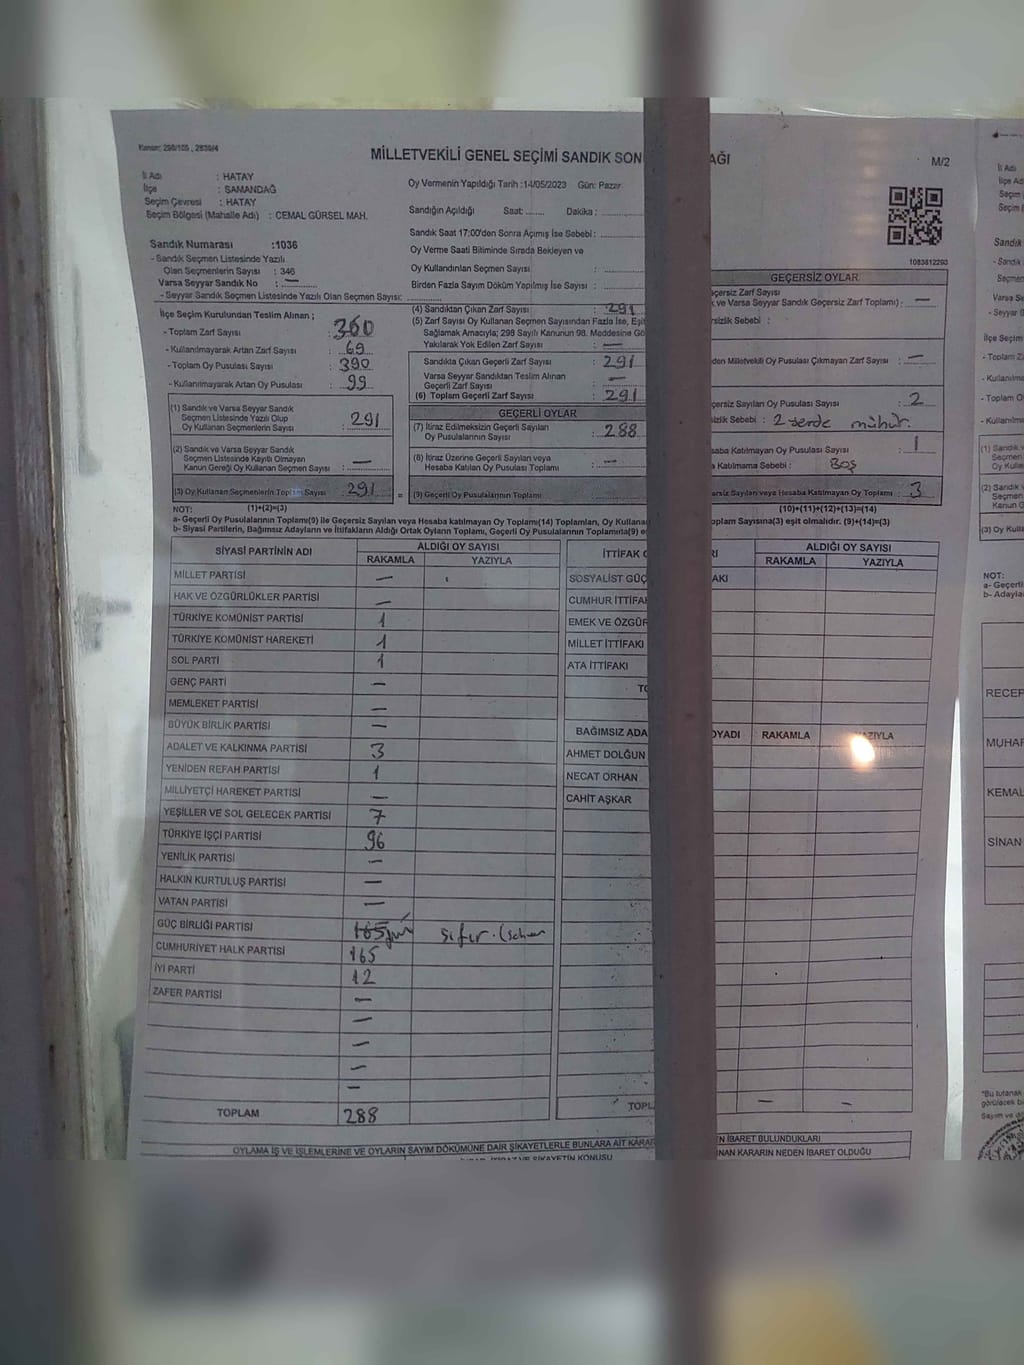 Kanun: 298/105 , 2839/4
MİLLETVEKİLİ GENEL SEÇİMİ SANDIK SON
AĞI
M/2
İl Adı : HATAY
İlçe : SAMANDAĞ
Seçim Çevresi : HATAY
Seçim Bölgesi (Mahalle Adı) : CEMAL GÜRSEL MAH.
Oy Vermenin Yapıldığı Tarih :14/05/2023 Gün: Pazar
Sandığın Açıldığı Saat: ........ Dakika : ............
Sandık Saat 17:00'den Sonra Açımış İse Sebebi : ............
Oy Verme Saati Bitiminde Sırada Bekleyen ve
Oy Kullandırılan Seçmen Sayısı : ............
Birden Fazla Sayım Döküm Yapılmış İse Sayısı : ............
1083812293
Sandık Numarası :1036
- Sandık Seçmen Listesinde Yazılı
Olan Seçmenlerin Sayısı : 346
Varsa Seyyar Sandık No : —
- Seyyar Sandık Seçmen Listesinde Yazılı Olan Seçmen Sayısı: ............
İlçe Seçim Kurulundan Teslim Alınan ;
- Toplam Zarf Sayısı : 360
- Kullanılmayarak Artan Zarf Sayısı : 69
- Toplam Oy Pusulası Sayısı : 390
- Kullanılmayarak Artan Oy Pusulası : 99
(1) Sandık ve Varsa Seyyar Sandık
Seçmen Listesinde Yazılı Olup
Oy Kullanan Seçmenlerin Sayısı : 291
(2) Sandık ve Varsa Seyyar Sandık
Seçmen Listesinde Kayıtlı Olmayan
Kanun Gereği Oy Kullanan Seçmen Sayısı : —
(3) Oy Kullanan Seçmenlerin Toplam Sayısı : 291
(4) Sandıktan Çıkan Zarf Sayısı : 291
(5) Zarf Sayısı Oy Kullanan Seçmen Sayısından Fazla İse, Eşit
Sağlamak Amacıyla; 298 Sayılı Kanunun 98. Maddesine Gö
Yakılarak Yok Edilen Zarf Sayısı : —
Sandıkta Çıkan Geçerli Zarf Sayısı : 291
Varsa Seyyar Sandıktan Teslim Alınan
Geçerli Zarf Sayısı : —
(6) Toplam Geçerli Zarf Sayısı : 291
GEÇERLİ OYLAR
(7) İtiraz Edilmeksizin Geçerli Sayılan
Oy Pusulalarının Sayısı : 288
(8) İtiraz Üzerine Geçerli Sayılan veya
Hesaba Katılan Oy Pusulası Toplamı : —
= (9) Geçerli Oy Pusulalarının Toplamı
GEÇERSİZ OYLAR
eçersiz Zarf Sayısı
k ve Varsa Seyyar Sandık Geçersiz Zarf Toplamı) : —
rsizlik Sebebi :
den Milletvekili Oy Pusulası Çıkmayan Zarf Sayısı : —
çersiz Sayılan Oy Pusulası Sayısı : 2
izlik Sebebi : 2 yerde mühür.
saba Katılmayan Oy Pusulası Sayısı : 1
a Katılmama Sebebi : Boş
ersiz Sayılan veya Hesaba Katılmayan Oy Toplamı : 3
NOT: (1)+(2)=(3)
(10)+(11)+(12)+(13)=(14)
a- Geçerli Oy Pusulalarının Toplamı(9) ile Geçersiz Sayılan veya Hesaba katılmayan Oy Toplamı(14) Toplamları, Oy Kullana
oplam Sayısına(3) eşit olmalıdır. (9)+(14)=(3)
b- Siyasi Partilerin, Bağımsız Adayların ve İttifakların Aldığı Ortak Oyların Toplamı, Geçerli Oy Pusulalarının Toplamına(9) e
SİYASİ PARTİNİN ADI ALDIĞI OY SAYISI
RAKAMLA YAZIYLA
MİLLET PARTİSİ —
HAK VE ÖZGÜRLÜKLER PARTİSİ —
TÜRKİYE KOMÜNİST PARTİSİ 1
TÜRKİYE KOMÜNİST HAREKETİ 1
SOL PARTİ 1
GENÇ PARTİ —
MEMLEKET PARTİSİ —
BÜYÜK BİRLİK PARTİSİ —
ADALET VE KALKINMA PARTİSİ 3
YENİDEN REFAH PARTİSİ 1
MİLLİYETÇİ HAREKET PARTİSİ —
YEŞİLLER VE SOL GELECEK PARTİSİ 7
TÜRKİYE İŞÇİ PARTİSİ 96
YENİLİK PARTİSİ —
HALKIN KURTULUŞ PARTİSİ —
VATAN PARTİSİ —
GÜÇ BİRLİĞİ PARTİSİ 165 sıfır
CUMHURİYET HALK PARTİSİ 165
İYİ PARTİ 12
ZAFER PARTİSİ —
—
—
—
—
TOPLAM 288
İTTİFAK
Rİ
ALDIĞI OY SAYISI
RAKAMLA YAZIYLA
SOSYALİST GÜÇ
AKI
CUMHUR İTTİFA
EMEK VE ÖZGÜR
MİLLET İTTİFAKI
ATA İTTİFAKI
TO
BAĞIMSIZ ADA
OYADI RAKAMLA YAZIYLA
AHMET DOLĞUN
NECAT ORHAN
CAHİT AŞKAR
TOPL
— —
OYLAMA İŞ VE İŞLEMLERİNE VE OYLARIN SAYIM DÖKÜMÜNE DAİR ŞİKAYETLERLE BUNLARA AİT KARAR
EN İBARET BULUNDUKLARI
İTİRAZ VE ŞİKAYETİN KONUSU
INAN KARARIN NEDEN İBARET OLDUĞU
İl Adı
İlçe Ad
Seçim
Seçim
Sandık
- Sandı
Olan
Varsa S
- Seyyar
İlçe Seçim
- Toplam
- Kullanılm
- Toplam O
- Kullanılm
(1) Sandık
Seçmen
Oy Kulla
(2) Sandık
Seçmen
Kanun G
(3) Oy Kull
NOT:
a- Geçerl
b- Adayla
RECEP
MUHAR
KEMAL
SİNAN
*Bu tutanak
görülecek b
Sayım ve d